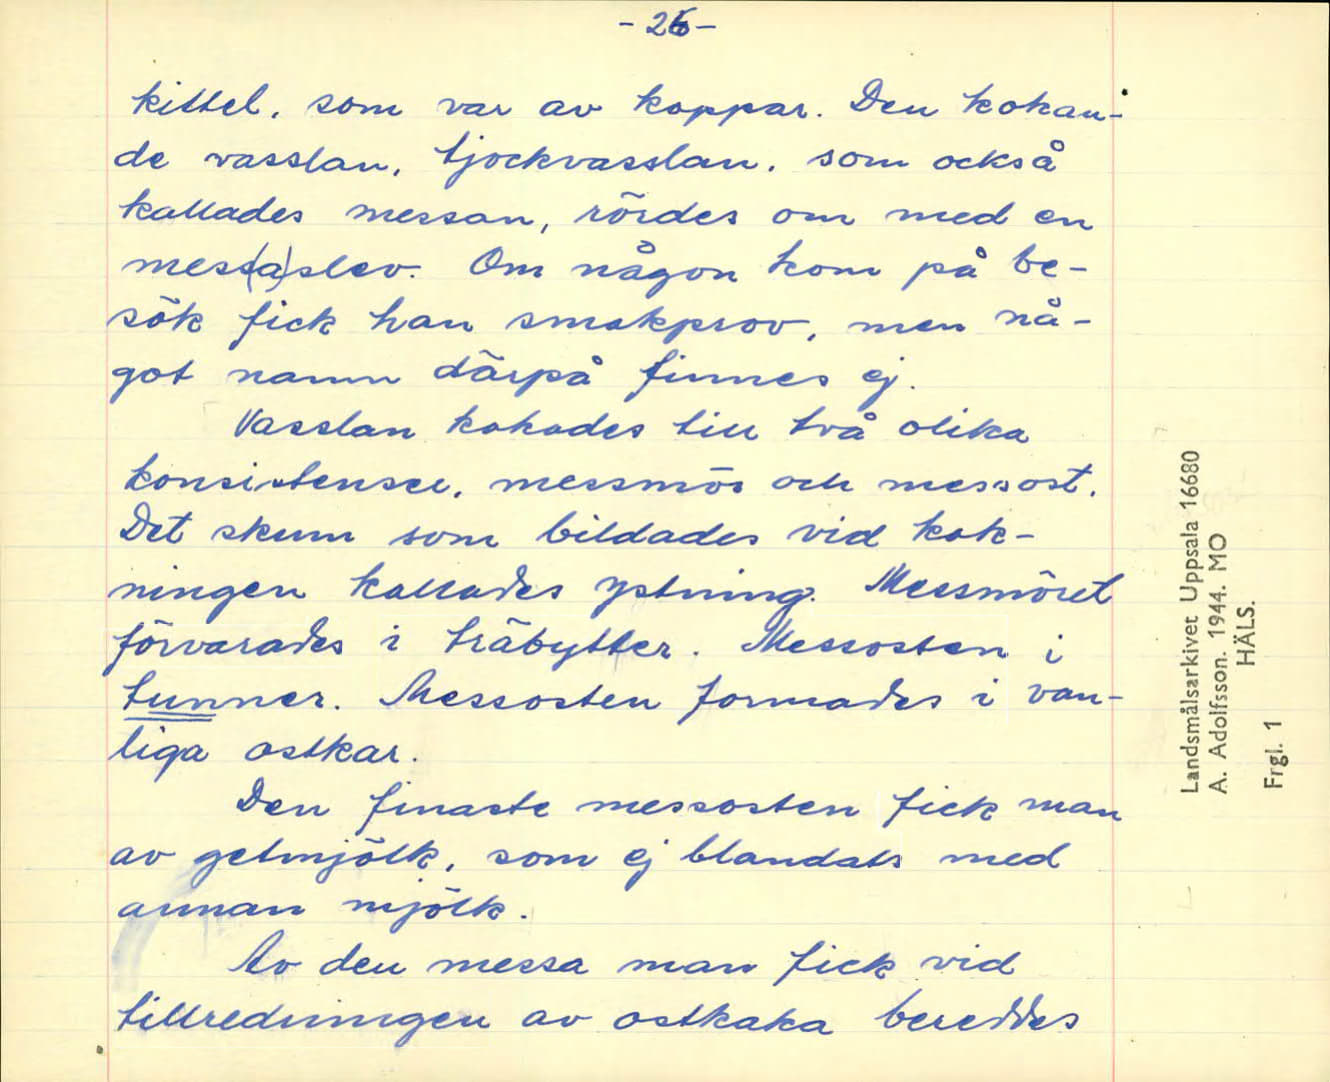 - 26 -
kittel, som var av koppar. Den kokan-
de vasslan, tjockvasslan, som också
kallades messan, rördes om med en
mess(a)slev. Om någon kom på be-
sök fick han smakprov, men nå-
got namn därpå finnes ej.
Vasslan kokades till två olika
konsistenser, messmör och messost.
Det skum som bildades vid kok-
ningen kallades ystning. Messmöret
förvarades i träbyttor. Messosten i
tunner. Messosten formades i van-
liga ostkar.
Den finaste messosten fick man
av getmjölk, som ej blandats med
annan mjölk.
Av den messa man fick vid
tillredningen av ostkaka bereddes
Landsmålsarkivet Uppsala 16680
A. Adolfsson. 1944. MO
HÄLS.
Frgl. 1